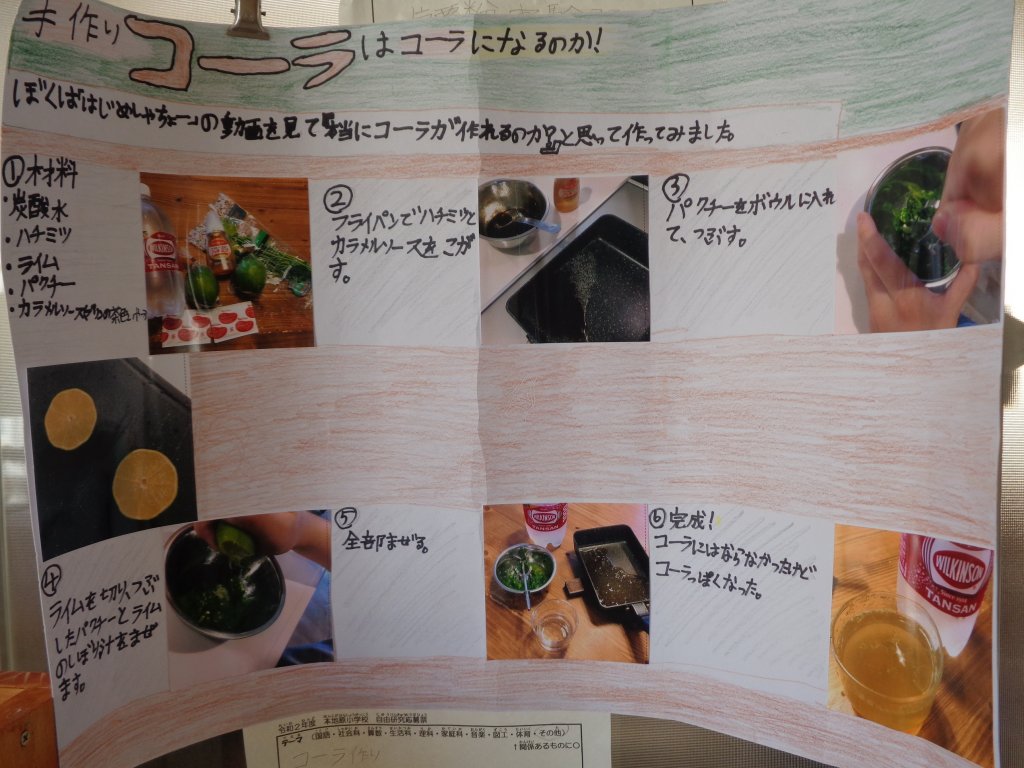 手作りコーラはコーラになるのか!
ぼくははじめしゃちょーの動画を見て本当にコーラが作れるのか?と思って作ってみました。
①材料
・炭酸水
・ハチミツ
・ライム
・パクチー
・カラメルソース
②
フライパンでハチミツと
カラメルソースをこが
す。
③
パクチーをボウルに入れ
て、つぶす。
④
ライムを切り、つぶ
したパクチーとライム
のしぼり汁をまぜ
ます。
⑤
全部まぜる。
⑥完成!
コーラにはならなかったけど
コーラっぽくなった。
WILKINSON
TANSAN
WILKINSON
TANSAN
WILKINSON
Since 1904
TANSAN
令和2年度 本地原小学校 自由研究応募票
テーマ (国語・社会科・算数・生活科・理科・家庭科・音楽・図工・体育・その他)
↑関係あるものに○
コーラ作り